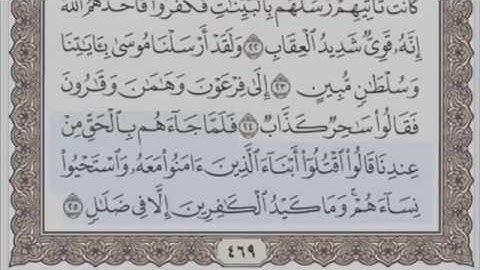 كَانَت تَّأْتِيهِمْ رُسُلُهُم بِٱلْبَيِّنَٰتِ فَكَفَرُوا۟ فَأَخَذَهُمُ ٱللَّهُ
إِنَّهُۥ قَوِىٌّ شَدِيدُ ٱلْعِقَابِ ٢٢ وَلَقَدْ أَرْسَلْنَا مُوسَىٰ بِـَٔايَٰتِنَا
وَسُلْطَٰنٍ مُّبِينٍ ٢٣ إِلَىٰ فِرْعَوْنَ وَهَٰمَٰنَ وَقَٰرُونَ
فَقَالُوا۟ سَٰحِرٌ كَذَّابٌ ٢٤ فَلَمَّا جَآءَهُم بِٱلْحَقِّ مِنْ
عِندِنَا قَالُوا۟ ٱقْتُلُوٓا۟ أَبْنَآءَ ٱلَّذِينَ ءَامَنُوا۟ مَعَهُۥ وَٱسْتَحْيُوا۟
نِسَآءَهُمْ ۚ وَمَا كَيْدُ ٱلْكَٰفِرِينَ إِلَّا فِى ضَلَٰلٍ ٢٥
٤٦٩